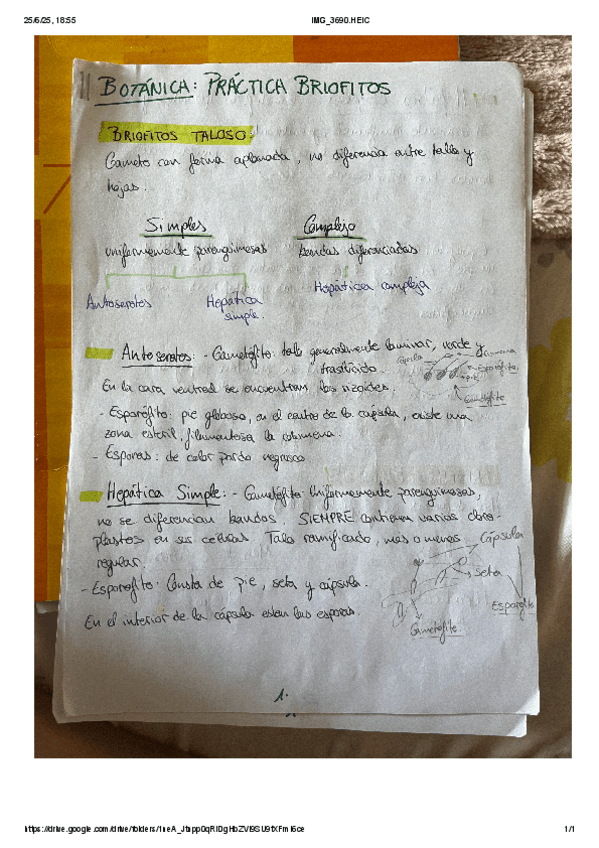 25/6/25, 18:55
IMG_3690.HEIC
BOTÁNICA: PRÁCTICA BRIOFITOS
BRIOFITOS TALOSO:
Gameto con forma aplanada, no diferencia entre tallo y
hojas.
Simples
Complejo
uniformemente parenquimosas
bandas diferenciadas
Antoserotos
Hepática
simple.
Hepática compleja
Antoserotos: - Gametofito: talo generalmente laminar, verde y
traslúcido.
En la cara ventral se encuentran los rizoides.
Esporofito
pie
Gametofito
- Esporofito: pie globoso, en el centro de la capsula, existe una
zona esteril, filamentosa la columena.
- Esporas: de color pardo negrusco
Hepática Simple: - Gametofito: Uniformemente parenquimosas,
no se diferencian bandos. SIEMPRE contienen varios cloro-
plastos en sus celulas. Talo ramificado, mas o menos
regular.
Cápsula
Seta
Esporofito
Gametofito.
- Esporofito: Consta de pie, seta y cápsula.
En el interior de la cápsula estan las esporas.
1.
1/1